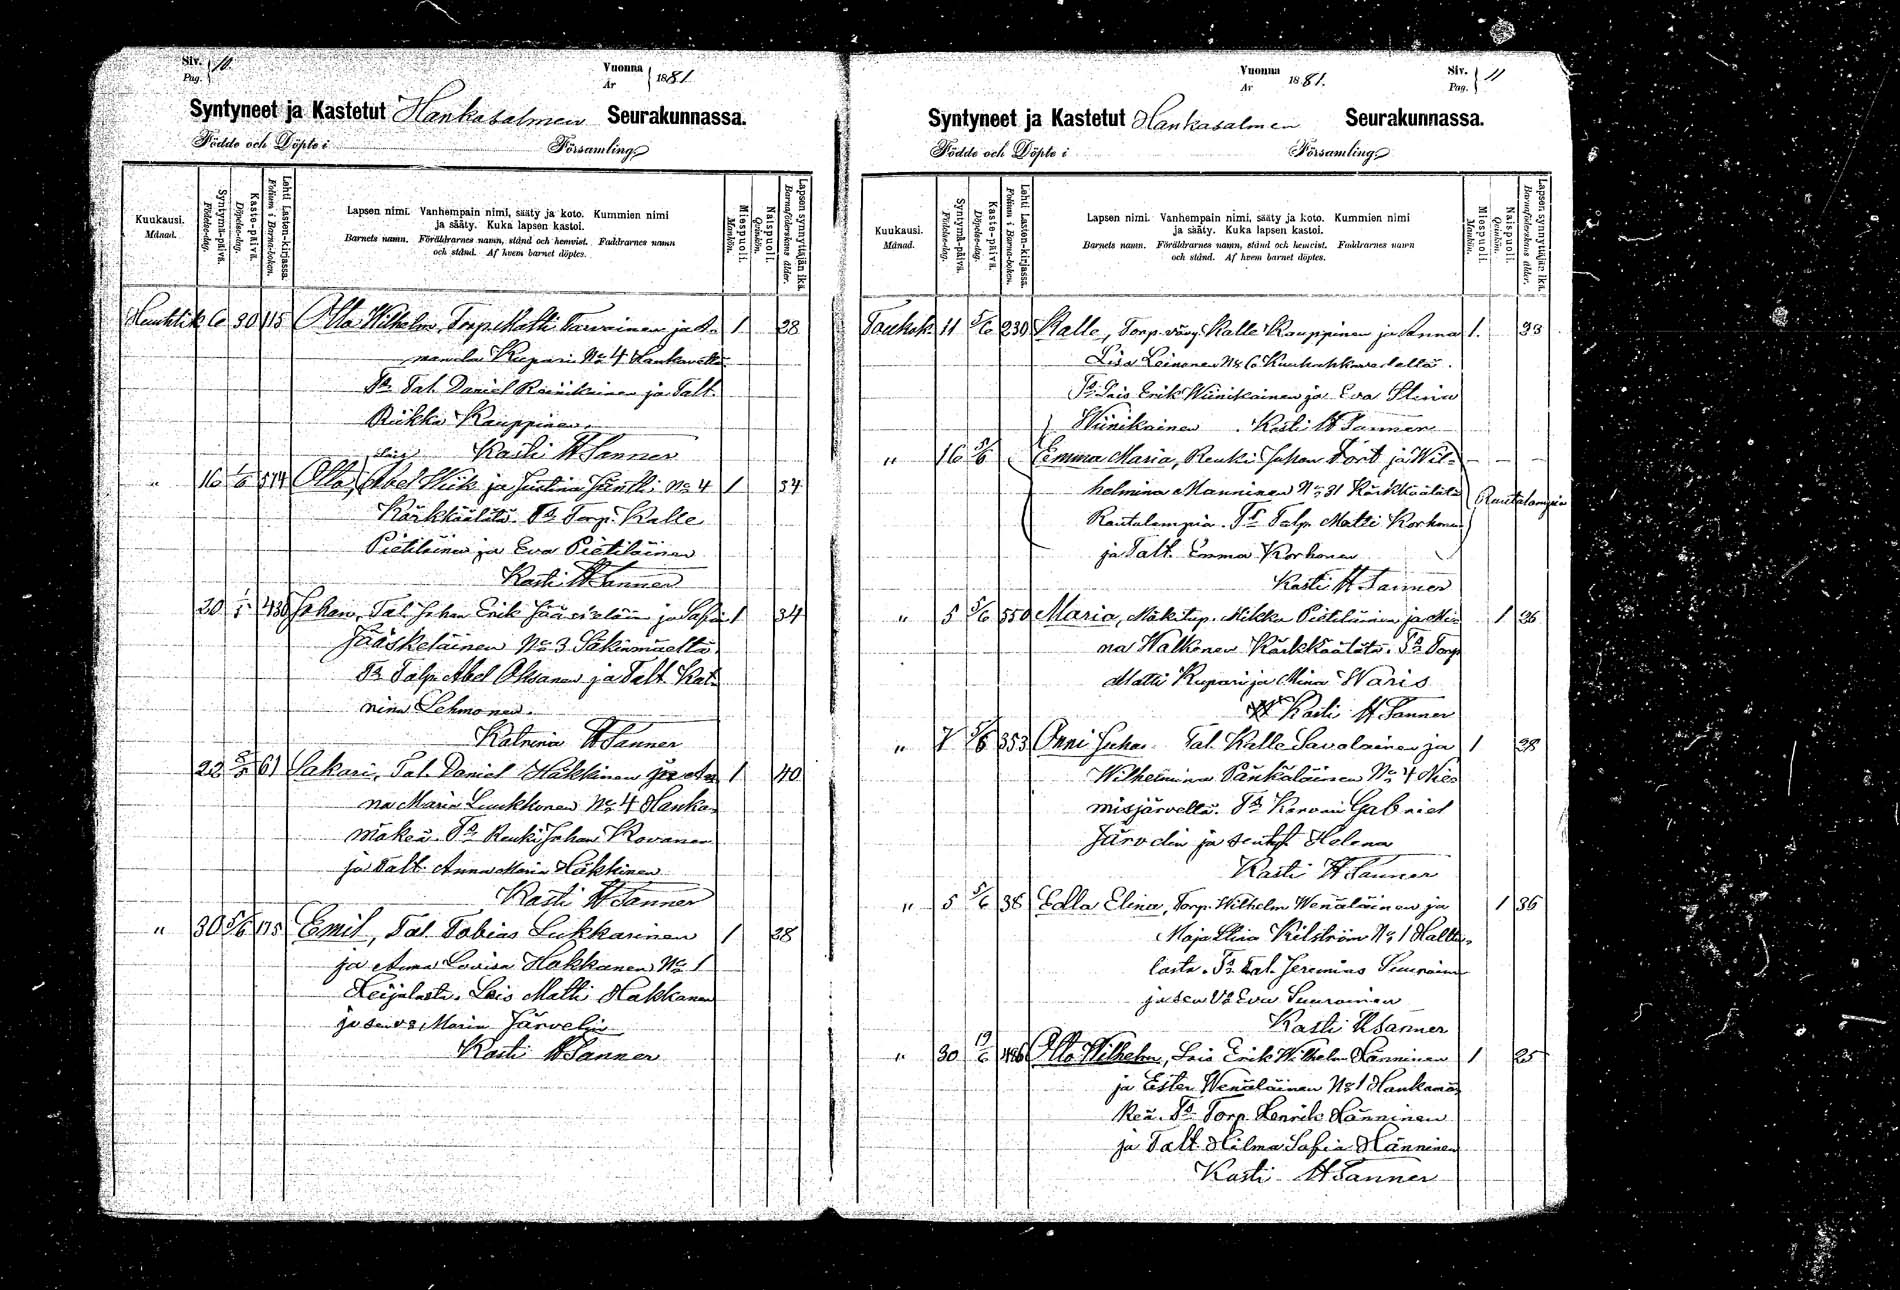 Siv. Pag. } 10.
Vuonna År } 1881
Syntyneet ja Kastetut Hankasalmen Seurakunnassa.
Födde och Döpte i Församling
Kuukausi. Månad.
Syntymä-päivä. Födelse-dag.
Kaste-päivä. Döpelse-dag.
Lehti Lasten-kirjassa. Folium i Barna-boken.
Lapsen nimi. Vanhempain nimi, sääty ja koto. Kummien nimi
ja sääty. Kuka lapsen kastoi.
Barnets namn. Föräldrarnes namn, stånd och hemvist. Faddrarnes namn
och stånd. Af hvem barnet döptes.
Miespuoli. Mankön.
Naispuoli. Qvinkön.
Lapsen synnyttäjän ikä. Barnaföderskans ålder.
Huhtik 6 30 115 Otto Wilhelm, Torp. Matti Tarvainen ja A- 1 28
manda Kupari No 4 Hankavelta
Ts Tal. Daniel Reinikainen ja Talt.
Riikka Kauppinen.
Kasti H Tanner
" 16 1/5 514 Otto, Abel Wiik ja Justina Jäntti No 4 1 34
Kärkkäälätä. Ts Torp. Kalle
Pietiläinen ja Eva Pietiläinen
Kasti H Tanner
20 1/5 430 Johan, Tal. Johan Erik Jääskeläin ja Sofia 1 34
Jääskeläinen No 3 Säkinmäeltä.
Ts Talp. Abel Oksanen ja Talt. Kat-
rina Lehmonen.
Katrina H Tanner
22 61 Sakari, Tal. Daniel Häkkinen ja An 1 40
na Maria Luukkonen No 4 Hanka-
mäkeä. Ts Renki Johan Kovanen
ja Talt. Anna Maria Häkkinen
Kasti H Tanner
" 30 5/6 175 Emil, Tal. Tobias Lukkarinen 1 28
ja Anna Lovisa Hakkanen No 1
Leijalasta. Lois Matti Hakkanen
ja sen vs. Maria Järvelin
Kasti H Tanner
Vuonna År 1881.
Siv. Pag. } 11
Syntyneet ja Kastetut Hankasalmen Seurakunnassa.
Födde och Döpte i Församling
Kuukausi. Månad.
Syntymä-päivä. Födelse-dag.
Kaste-päivä. Döpelse-dag.
Lehti Lasten-kirjassa. Folium i Barna-boken.
Lapsen nimi. Vanhempain nimi, sääty ja koto. Kummien nimi
ja sääty. Kuka lapsen kastoi.
Barnets namn. Föräldrarnes namn, stånd och hemvist. Faddrarnes namn
och stånd. Af hvem barnet döptes.
Miespuoli. Mankön.
Naispuoli. Qvinkön.
Lapsen synnyttäjän ikä. Barnaföderskans ålder.
Toukok. 11 5/6 230 Kalle, Torp. vävy Kalle Kauppinen ja Anna 1. 33
Lisa Leinonen No 6
Ts Lois Erik Wiinikainen ja Eva Stina
Wiinikainen. Kasti H Tanner
" 16 5/6 Emma Maria, Renki Johan Tort ja Wil- – – –
helmina Manninen No 31 Kärkkäälätä
Rautalampia. Ts Talp. Matti Korhonen
Rautalampiin
ja Talt. Emma Korhonen
Kasti H Tanner
" 5 5/6 550 Maria, Mäkitup. Mikko Pietiläinen ja Mi- 1 26
na Walkonen Kärkkäälätä. Ts Torp
Matti Kupari ja Mina Waris
Kasti H Tanner
" 7 5/6 353 Onni Juho. Tal. Kalle Savolainen ja 1 28
Wilhelmina Pänkäläinen No 4 Nie-
misjärveltä. Ts Gabriel
Järvelin ja Helena
Kasti H Tanner
" 5 5/6 38 Edla Elina, Torp. Wilhelm Wenäläinen ja 1 36
Maja Stina Kilström No 1 Halttu-
lasta. Ts Tal. Jeremias Suuroinen
ja sen Vs Eva Suuroinen
Kasti H Tanner
" 30 19/6 486 Otto Wilhelm, Lois Erik Wilhelm Hänninen 1 25
ja Ester Wenäläinen No 1 Hankamä-
keä. Ts Torp. Henrik Hänninen
ja Talt. Hilma Sofia Hänninen
Kasti H Tanner